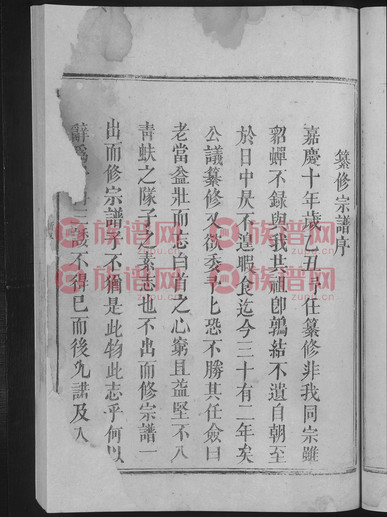 纂修宗譜序
嘉慶十年歲乙丑卓仕纂修非我同宗雖
貂蟬不錄與我共祖卽鶉結不遺自朝至
於日中昃不遑暇食迄今三十有二年矣
公議纂修又欲委 匕恐不勝其任僉曰
老當益壯而志白首之心窮且益堅不入
青蚨之隊子之素志也不出而修宗譜一
出而修宗譜 不猶是此物此志乎何以
辭爲 三 不得已而後允諾及入